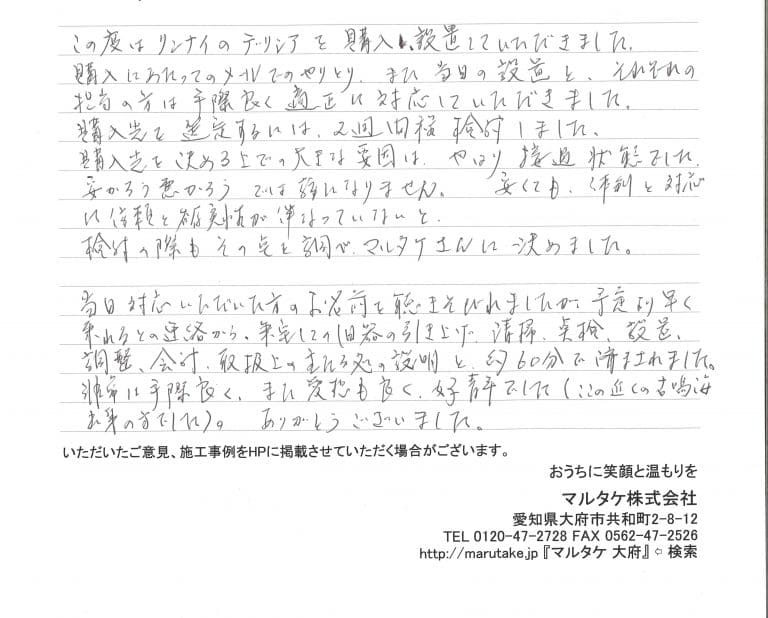 この度はリンナイのデリシアを購入、設置していただきました。
購入にあたってのメールでのやりとり、また当日の設置と、それぞれの
担当の方は手際良く適正に対応していただきました。
購入先を選定するには、2週間程検討しました。
購入先を決める上での大きな要因は、やはり接遇状態でした。
安かろう悪かろうでは話になりません。 安くても、体制と対応
に信頼と確実性が伴なっていないと。
検討の際もその点を調べ、マルタケさんに決めました。
当日対応いただいた方のお名前を聴きそびれましたが、予定より早く
来れるとの連絡から、来宅しての旧器の引き上げ、清掃、点検、設置、
調整、会計、取扱上の主たる処の説明と、約60分で済まされました。
非常に手際良く、また愛想も良く、好青年でした(ここの近くの古鳴海
出身の方でした)。 ありがとうございました。
いただいたご意見、施工事例をHPに掲載させていただく場合がございます。
おうちに笑顔と温もりを
マルタケ株式会社
愛知県大府市共和町2-8-12
TEL 0120-47-2728 FAX 0562-47-2526
http://marutake.jp『マルタケ 大府』⇦ 検索